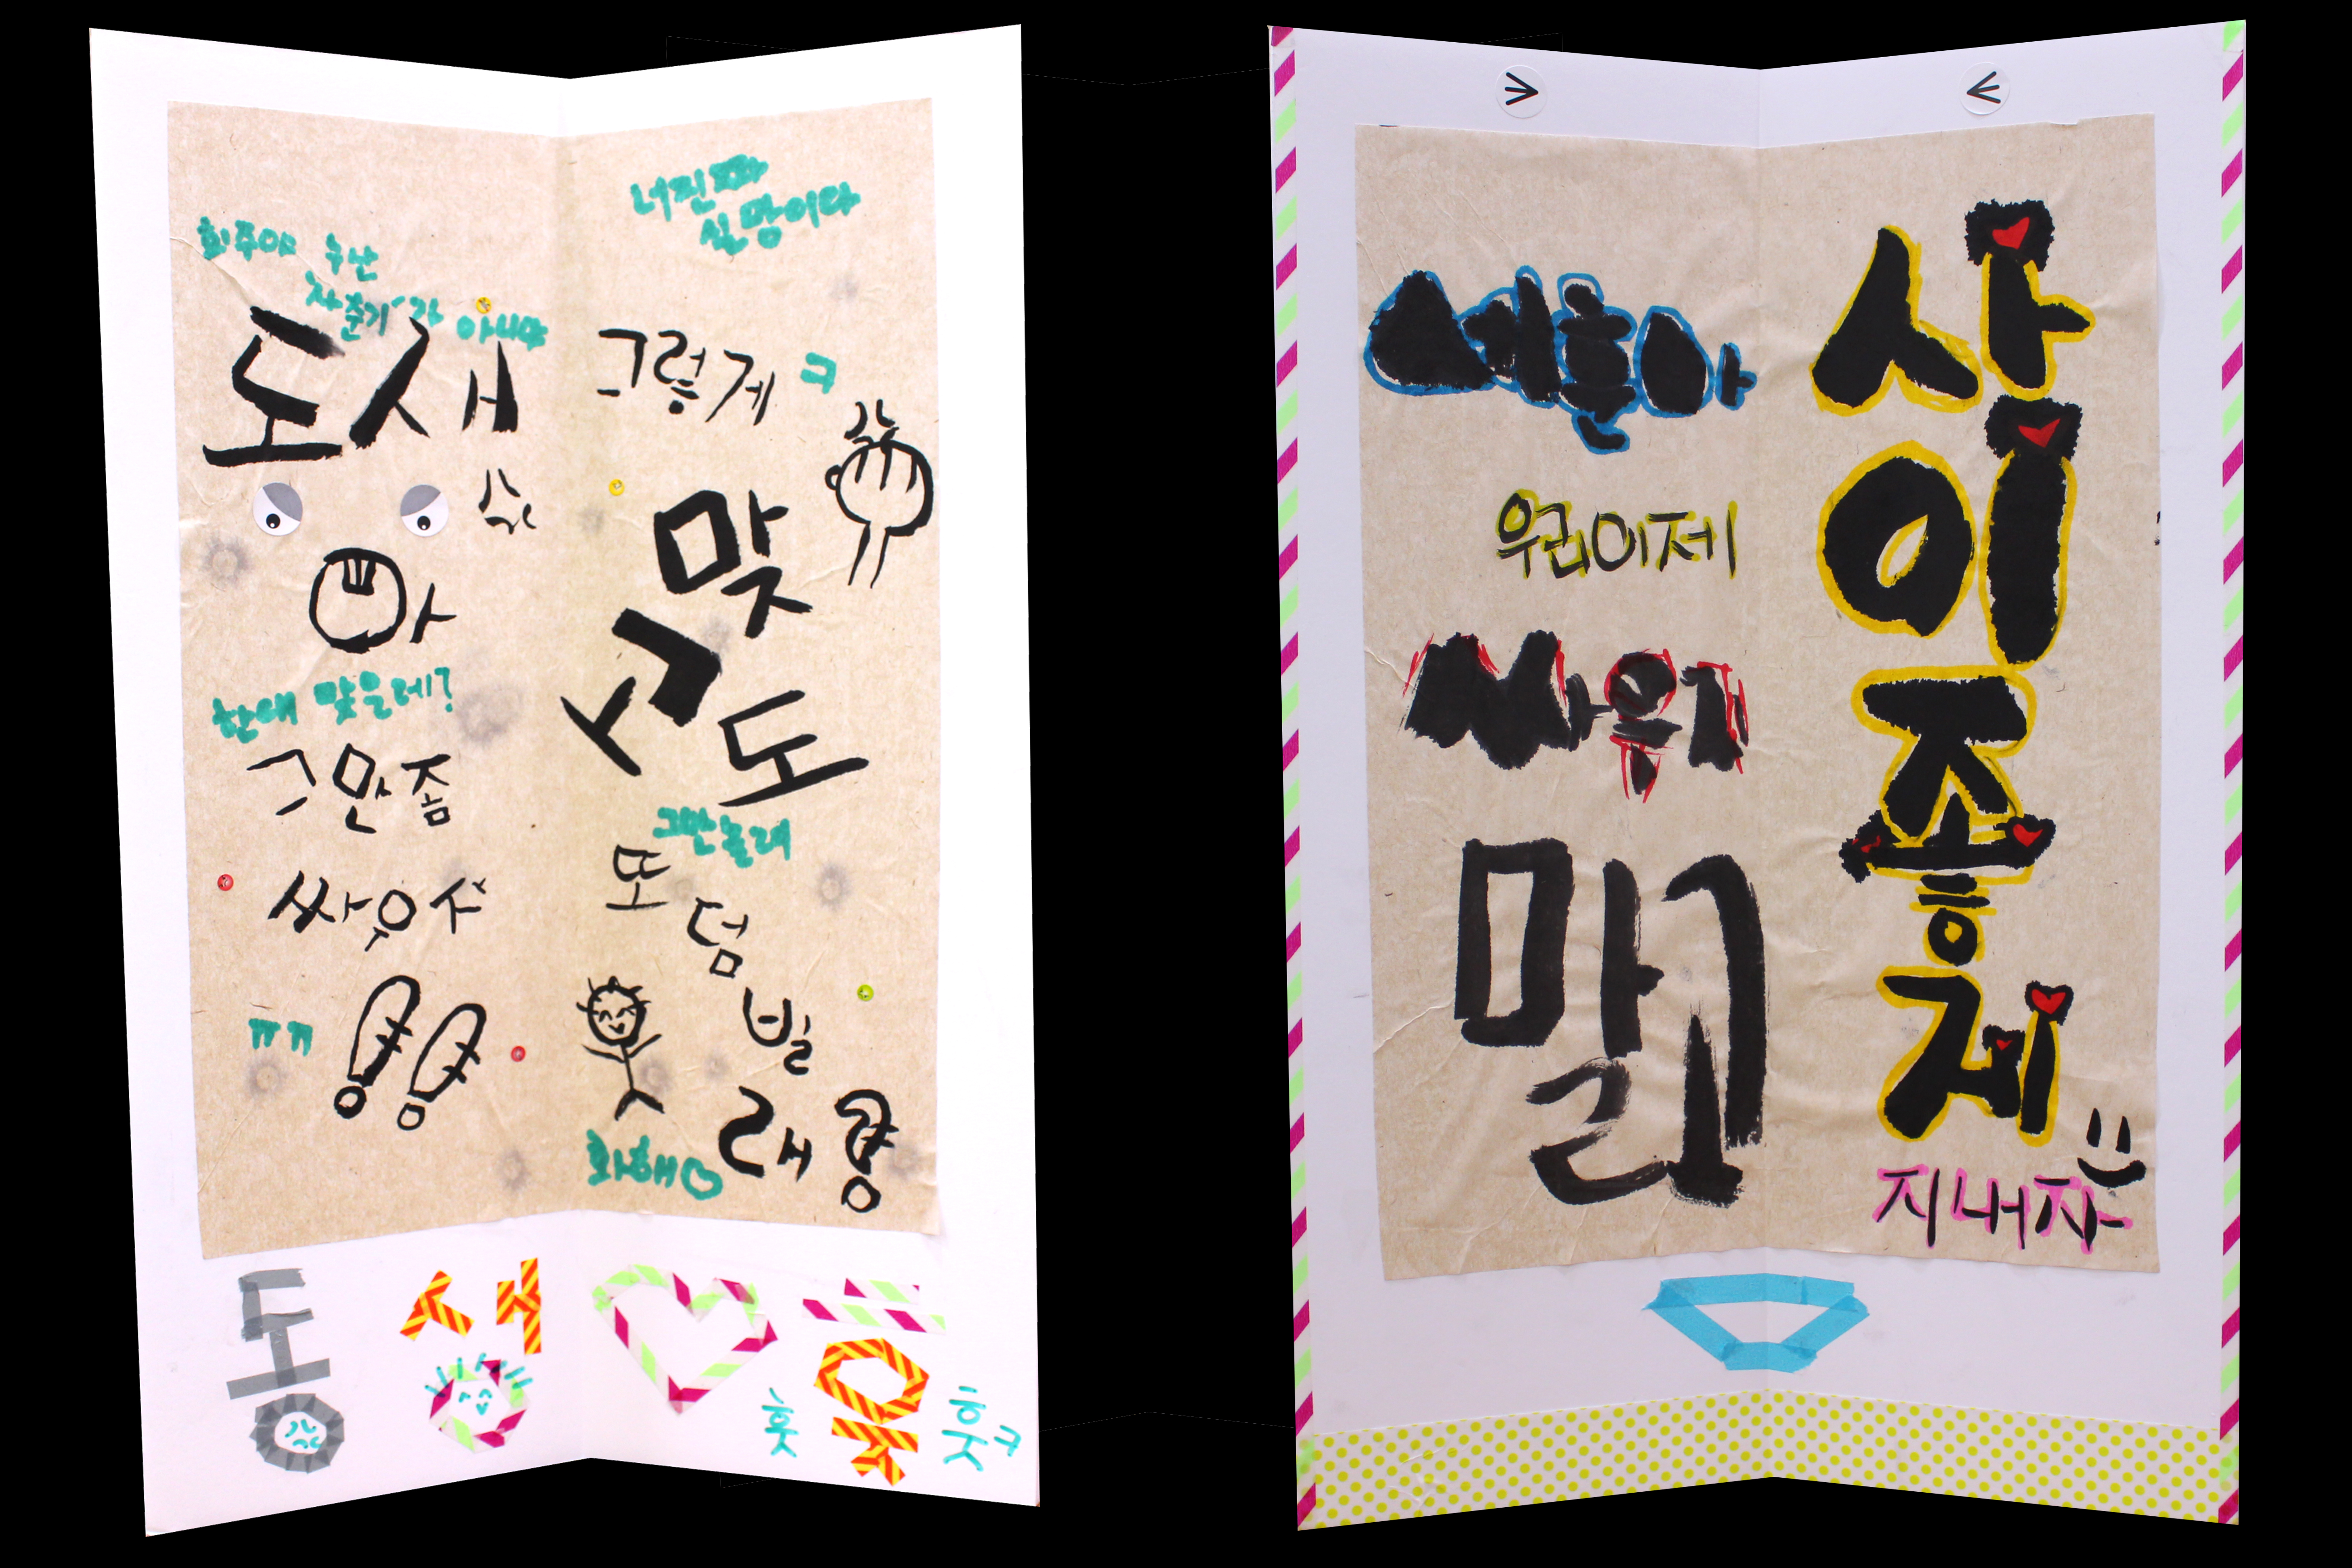 희주야
아니야
동생
아
한대 맞을레?
그만좀
싸우자
ㅠㅠ !!
너진짜
실망이다
그렇게 ㅋ
맞
고도
그만놀려
또
덤
빌
래?
화해♡
동생♡훗
훗 훗ㅋ
세훈아
이제
싸우지
말고
사
이
좋
게
지내자